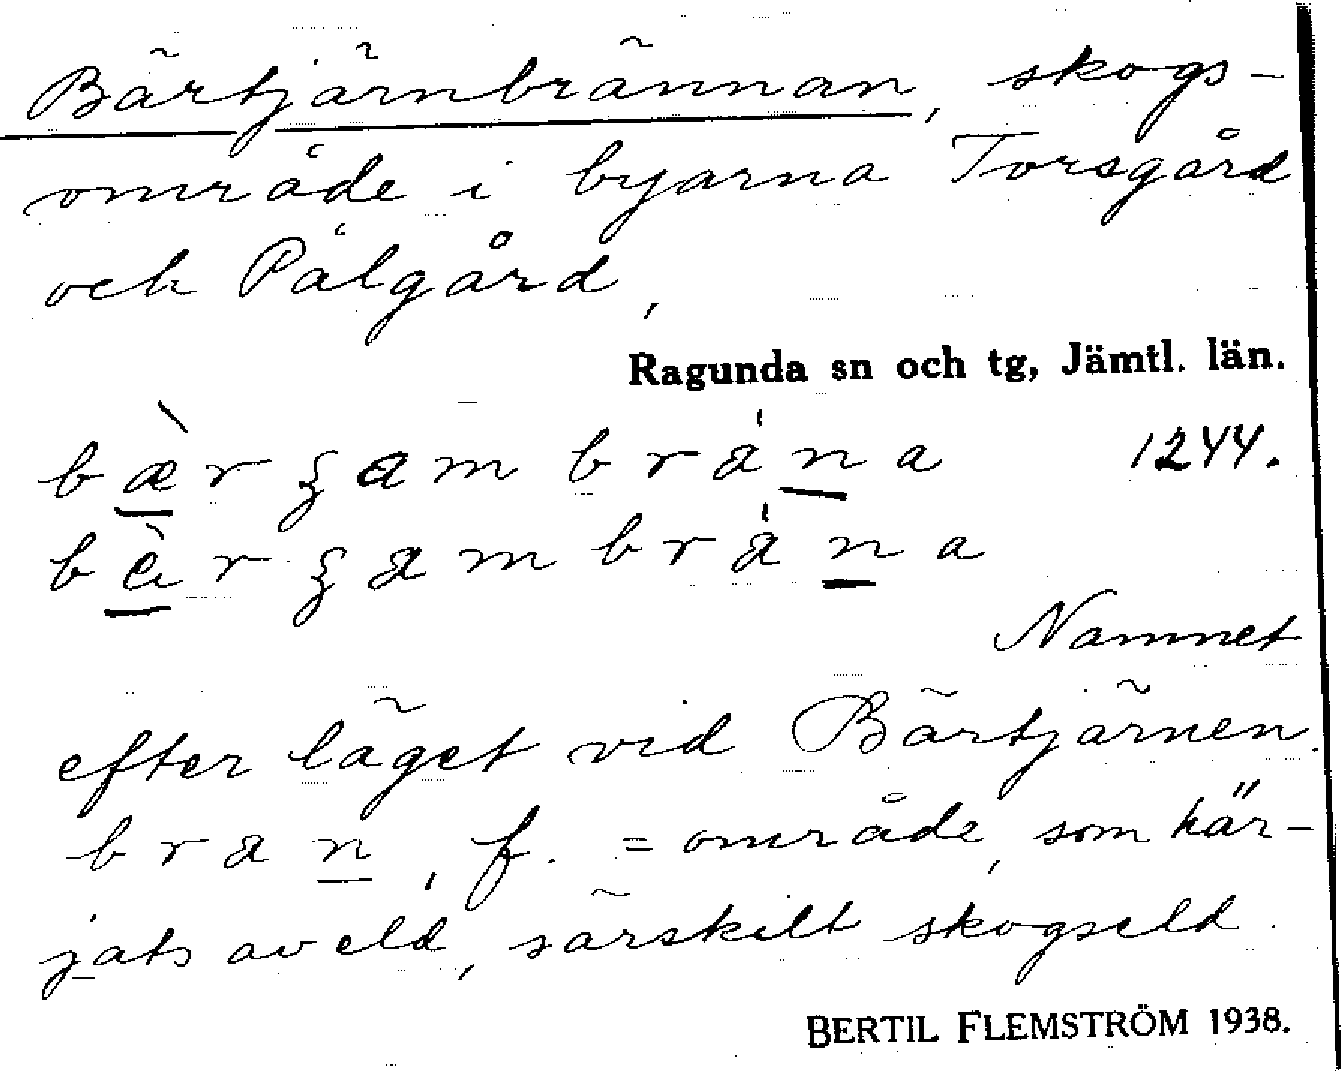 Bärtjärnbrännan, skogs-
område i byarna Torsgård
och Pålgård,
Ragunda sn och tg, Jämtl. län.
bæ̀rʒam brána 1244.
bèrʒam brána
Namnet
efter läget vid Bärtjärnen.
bran, f. = område, som här-
jats av eld, särskilt skogseld.
BERTIL FLEMSTRÖM 1938.